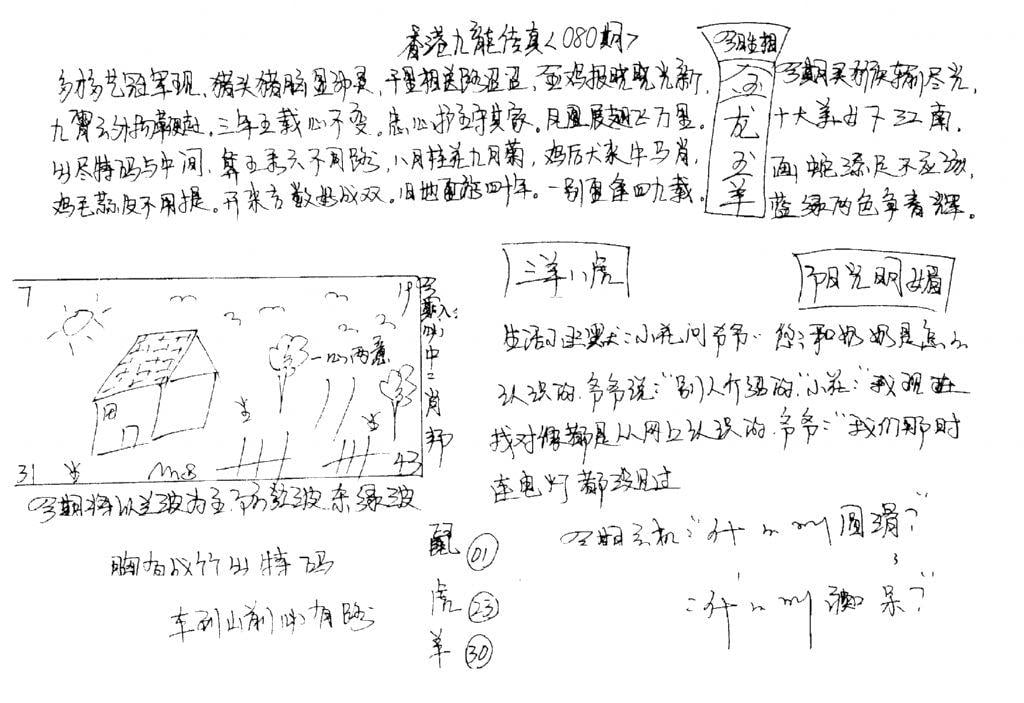 香港九龍传真<080期>
今胜相
多才多艺冠军现,猪头猪脑显神灵,千里相送路迢迢,金鸡报晓晓光新,
九霄云外扬鞭赶。三年五载心不变。忠心护主守其家。凤凰展翅飞万里。
出尽特码与中间,算五来六不同路,八月桂花九月菊,鸡后犬来牛马肖,
鸡毛蒜皮不用提。开来方数必成双。旧地重游四十年。一别重逢四九载。
龙
羊
十大美女下江南,
画蛇添足不应该,
蓝绿两色争春辉。
三羊八虎
阳光明媚
7
19
31
43
一心两意
中二肖
生活小幽默:小花问爷爷:您和奶奶是怎么
认识的,爷爷说:"别人介绍的"小花:"我现在
找对像都是从网上认识的,爷爷:"我们那时
连电灯都没见过
今期将以兰波为主,防红波,杀绿波
胸有成竹出特码
车到山前必有路
鼠 01
虎 23
羊 30
今期玄机:"什么叫圆滑?"